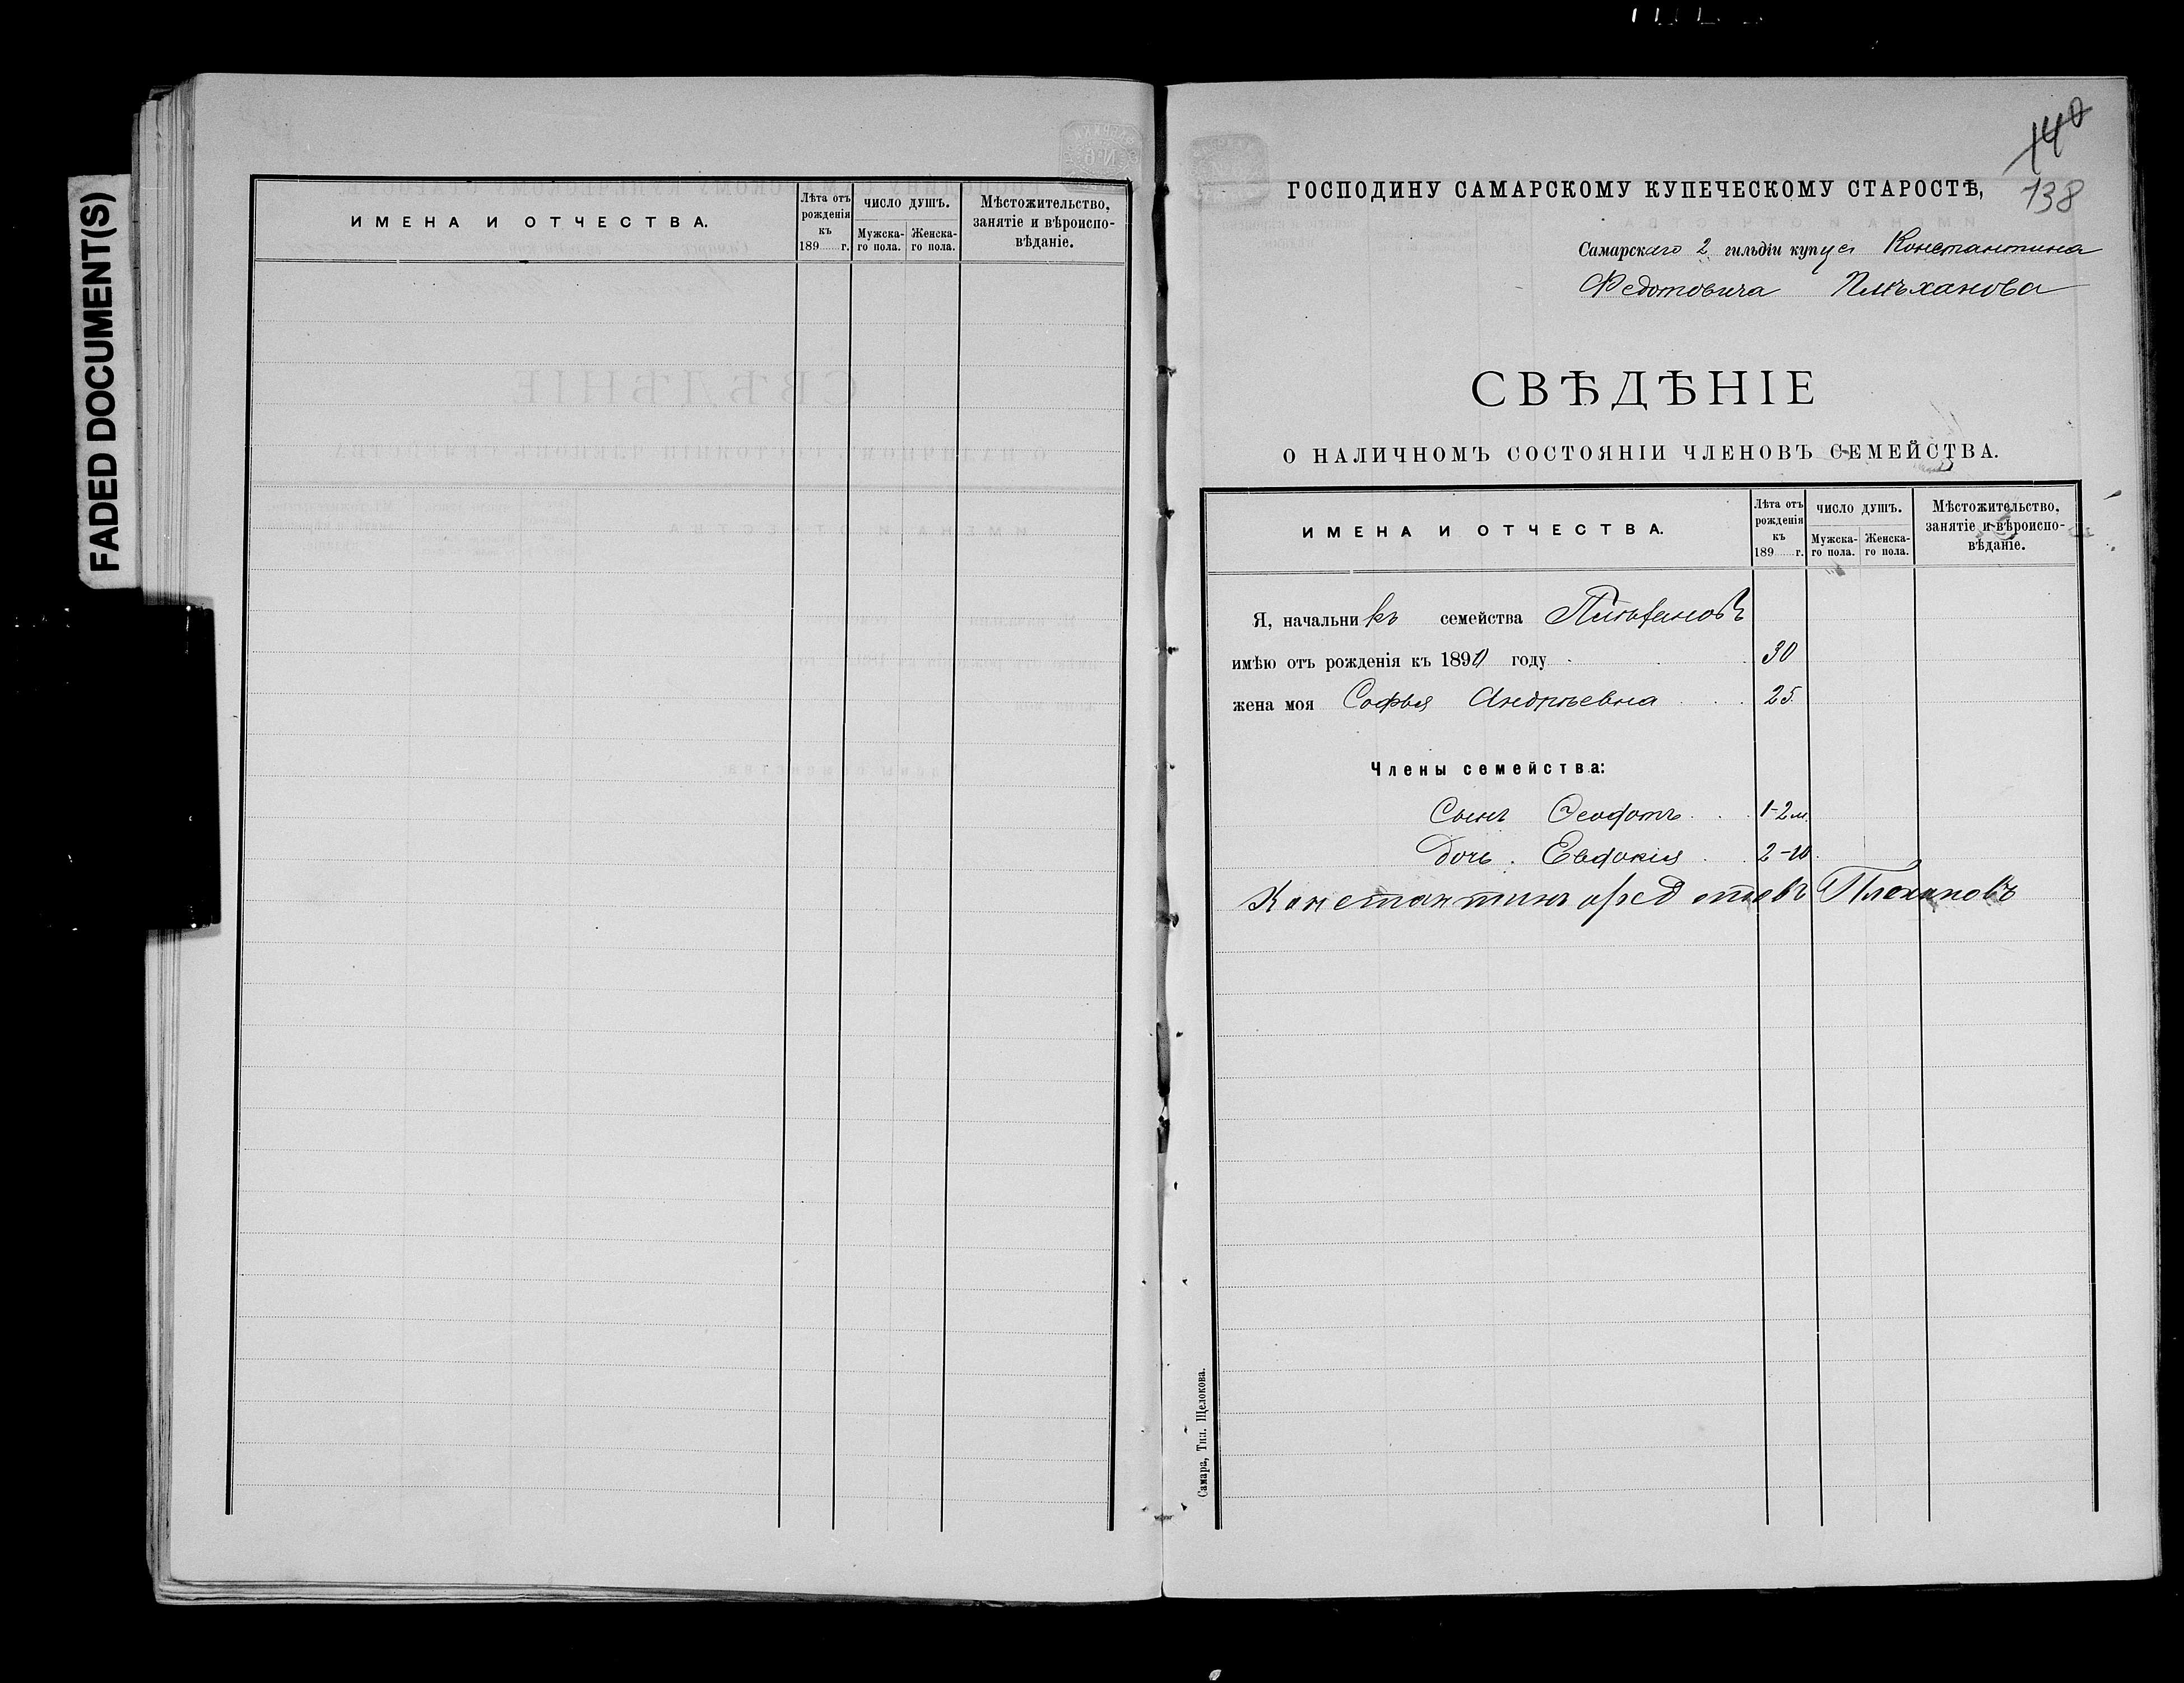 FADED DOCUMENT(S)
ИМЕНА И ОТЧЕСТВА.
Лѣта отъ рожденія къ 189 г.
ЧИСЛО ДУШЪ.
Мужска-го пола.
Женска-го пола.
Мѣстожительство, занятіе и вѣроиспо-вѣданіе.
140
138
ГОСПОДИНУ САМАРСКОМУ КУПЕЧЕСКОМУ СТАРОСТѢ,
Самарскаго 2 гильдіи купца Константина
Федотовича Плѣханова
СВѢДѢНІЕ
О НАЛИЧНОМЪ СОСТОЯНІИ ЧЛЕНОВЪ СЕМЕЙСТВА.
ИМЕНА И ОТЧЕСТВА.
Лѣта отъ рожденія къ 189 г.
ЧИСЛО ДУШЪ.
Мужска-го пола.
Женска-го пола.
Мѣстожительство, занятіе и вѣроиспо-вѣданіе.
Я, начальникъ семейства Плѣхановъ
имѣю отъ рожденія къ 1890 году 30
жена моя Софья Андрѣевна 25
Члены семейства:
Сынъ Феодотъ 1-2 м.
Дочь Евдокія 2-10
Константинъ Федотовъ Плехановъ
Самара, Тип. Щелокова.